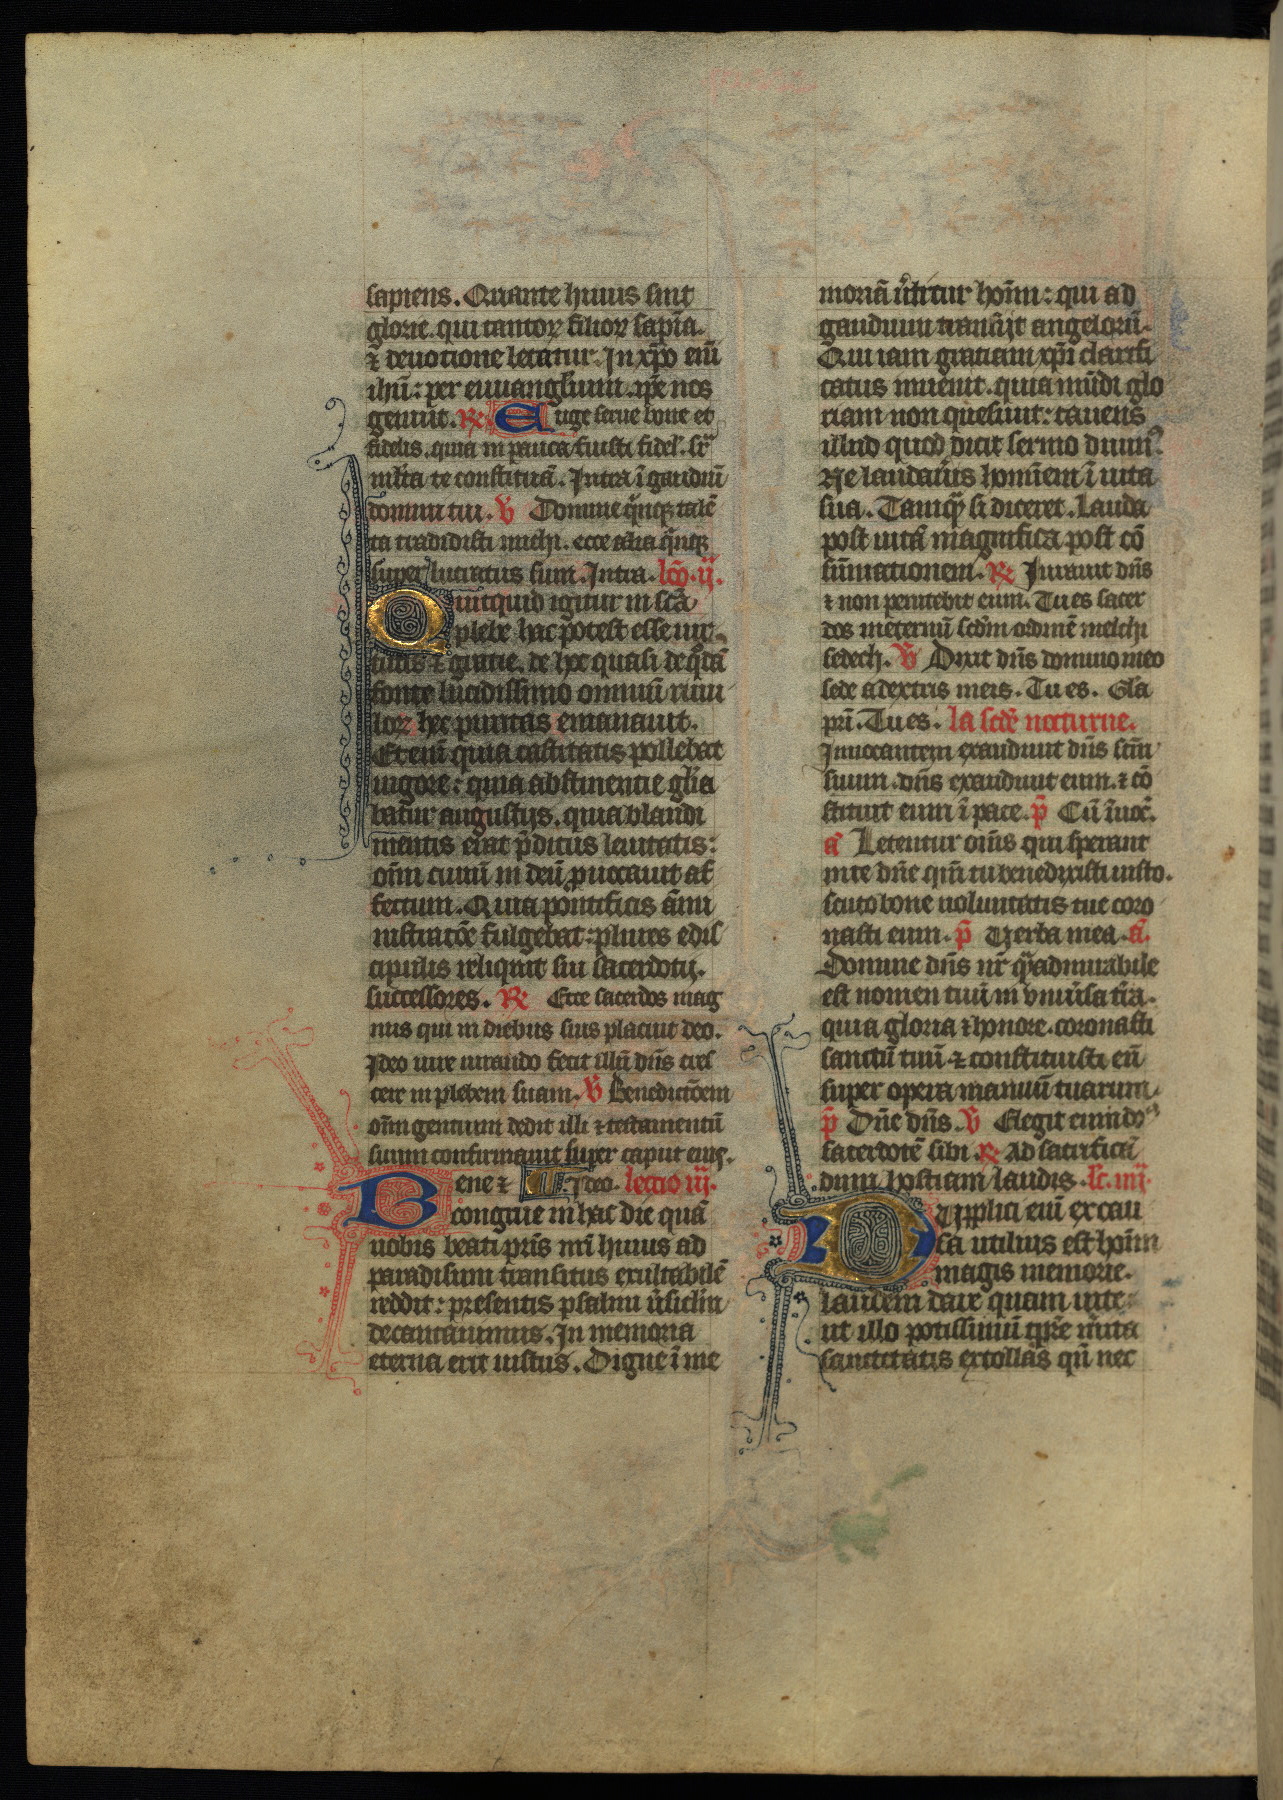 sapiens. Quante huius sint
glorie. qui tantoꝝ filioꝝ sapīa.
⁊ deuotione letatur. In xp̄o eni̅
ihu̅: per euuangliu̅m. ip̄e nos
genuit. R Euge serue bone et
fidelis. quia in pauca fuisti fidel̓. sr̄
multa te constituā. Intra ī gaudiū
domini tui. V Domine q̓nqꝫ talē
ta tradidisti michi. ecce alia q̓nqꝫ
super lucratus sum. Intra. lc̄o. ij.
Quitquid igitur in sc̄a
plebe hac potest esse uir
tutis ⁊ gratie. de hoc quasi de q̓dā
fonte lucidissimo omniū riuu
loꝝ hec puritas emanauit.
Et eni̅ quia castitatis pollebat
uigore: quia abstinentie gl̄ia
batur augustijs. quia blandi
mentis erat p̄ditus leuitatis:
om̄i ciuiū in deū prouocauit af
fectum. Quia pontificis āmi
nistratōe fulgebat: plures edis
cipulis reliquit sui sacerdotij.
successores. R Ecce sacerdos mag
nus qui in diebus suis placuit deo.
Ideo iure iurando fecit illū dn̄s cres
cere in plebem suam. V Benedictōem
om̄i gentium dedit illi ⁊ testamentū
suum confirmauit super caput eius.
Ideo. lectio iij.
Bene ⁊
congrue in hac die quā
uobis beati pr̄is nr̄i huius ad
paradisum transitus exultabilē
reddit: presentis psalmi v̓siclm̄
decantauimus. In memoria
eterna erit iustus. Digne ī me
moriā u̓titur hoīm: qui ad
gaudium transijt angelorū.
Qui iam gratiam xp̄i clarifi
catus inuenit. quia mūdi glo
riam non quesiuit: cauens
illud quod dicit sermo diuin̓.
Ne laudau̓is hominem ī uita
sua. Tamqȝ si diceret. Lauda
post uitā magnifica post cō
sūmationem. R Iurauit dn̄s
⁊ non penitebit eum. Tu es sacer
dos ineternū secdm ordinē melchi
sedech. V Dixit dn̄s domino meo
sede adextris meis. Tu es. Gl̄a
pri̅. Tu es. In scd̄o nocturne.
Inuocantem exaudiuit dn̄s scm̄
suum. dn̄s exaudiuit eum. ⁊ cō
stituit eum ī pace. p̄ Cū īuoc̄.
a Letentur om̄s qui sperant
inte dn̄e qm̄ tu benedixisti iusto.
scuto bone uoluntatis tue coro
nasti eum. p̄ Verba mea. a.
Domine dn̄s nr̄ q̓admirabile
est nomen tuū in vniu̓sa tr̄a.
quia gloria ⁊ honore. coronasti
sanctū tuū ⁊ constituisti eū
super opera manuū tuarum.
p̄ Dn̄e dn̄s. V Elegit eum do̅
sacerdotē sibi. R Ad sacrificā
dum hostiam laudis. lc̄. iiij.
Duplici eni̅ ex cau
sa utilius est hoīm
magis memorie.
laudem dare quam uite.
ut illo potissimū tpr̄e mērita
sanctitatis extollas qn̄ nec